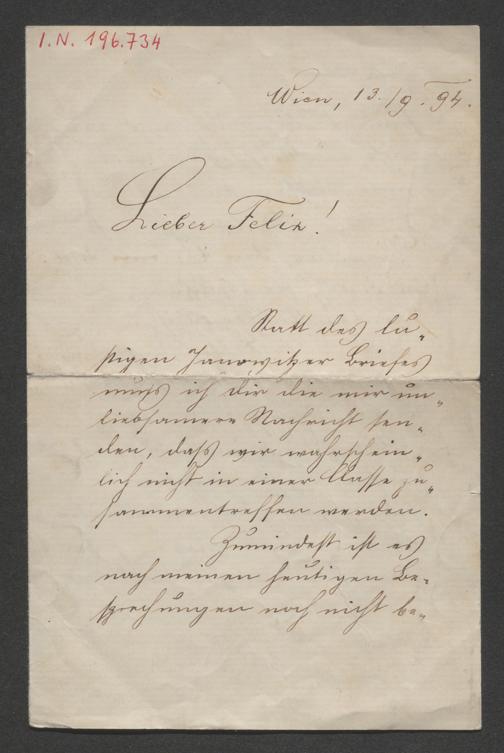 I.N. 196.734
Wien, 13./9. 94.
Lieber Felix!
Statt des lu„
stigen Janowitzer Briefes
muss ich Dir die mir un„
liebsamere Nachricht sen„
den, dass wir wahrschein„
lich nicht in einer Classe zu„
sammentreffen werden.
Zumindest ist es
nach meinen heutigen Be„
sprechungen noch nicht be„